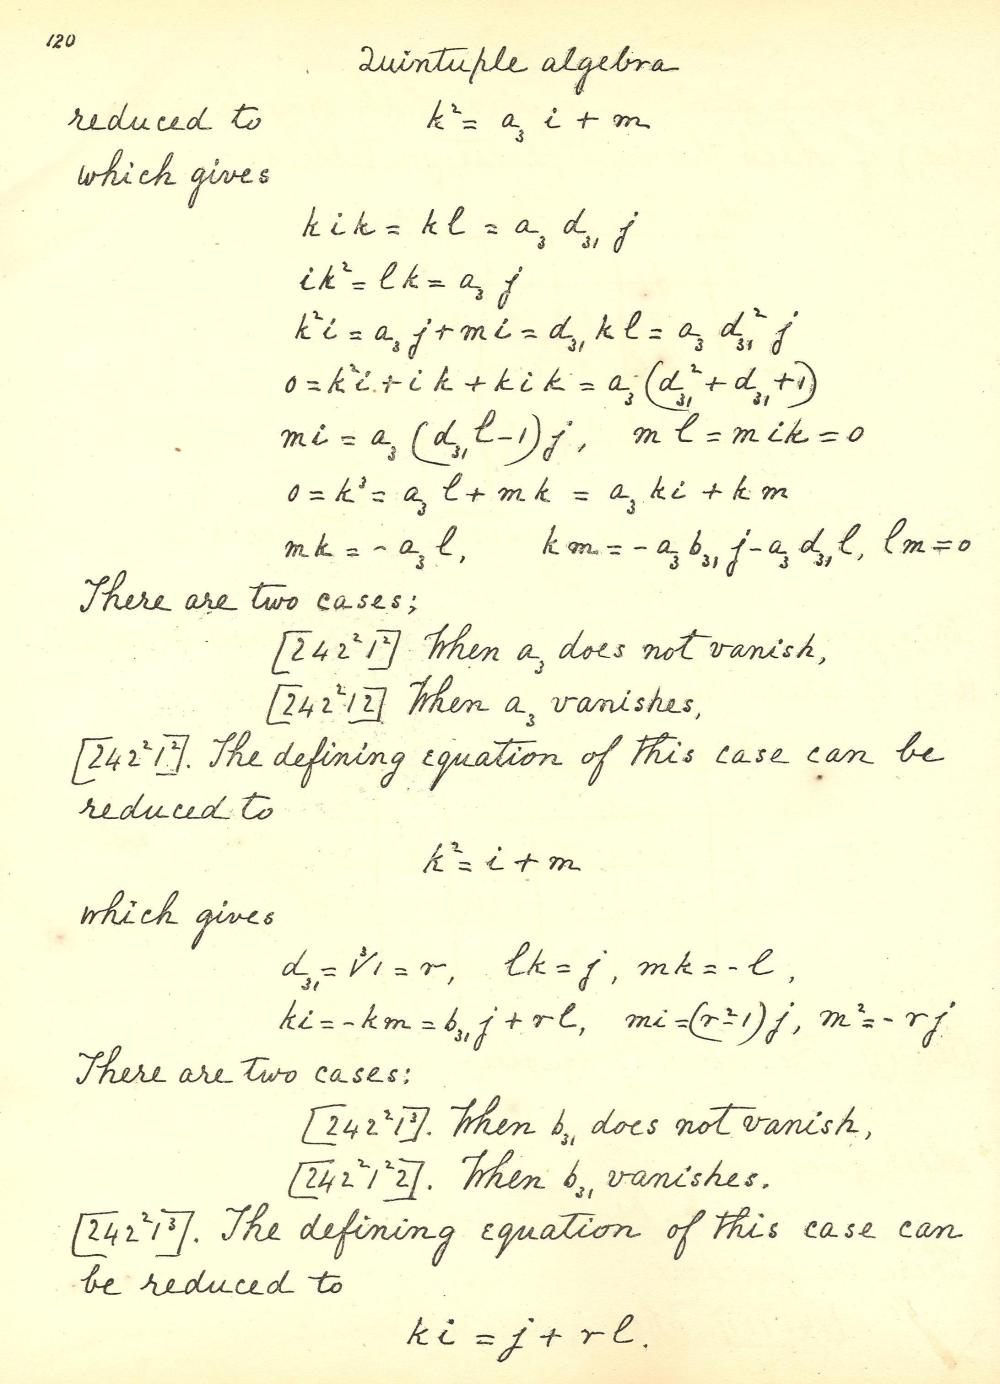 120
Quintuple algebra
reduced to k² = a₃ i + m
which gives
kik = kl = a₃ d₃₁ j
ik² = lk = a₃ j
k²i = a₃ j + mi = d₃₁ kl = a₃ d₃₁² j
0 = k²i + ik + kik = a₃ (d₃₁² + d₃₁ + 1)
mi = a₃ (d₃₁ l - 1) j, ml = mik = 0
0 = k³ = a₃ l + mk = a₃ ki + km
mk = - a₃ l, km = - a₃ b₃₁ j - a₃ d₃₁ l, lm = 0
There are two cases;
[242²1²] When a₃ does not vanish,
[242²12] When a₃ vanishes,
[242²1²]. The defining equation of this case can be
reduced to
k² = i + m
which gives
d₃₁ = ∛1 = r, lk = j, mk = - l,
ki = - km = b₃₁ j + rl, mi = (r² - 1) j, m² = - rj
There are two cases:
[242²1³]. When b₃₁ does not vanish,
[242²1²2]. When b₃₁ vanishes.
[242²1³]. The defining equation of this case can
be reduced to
ki = j + rl.